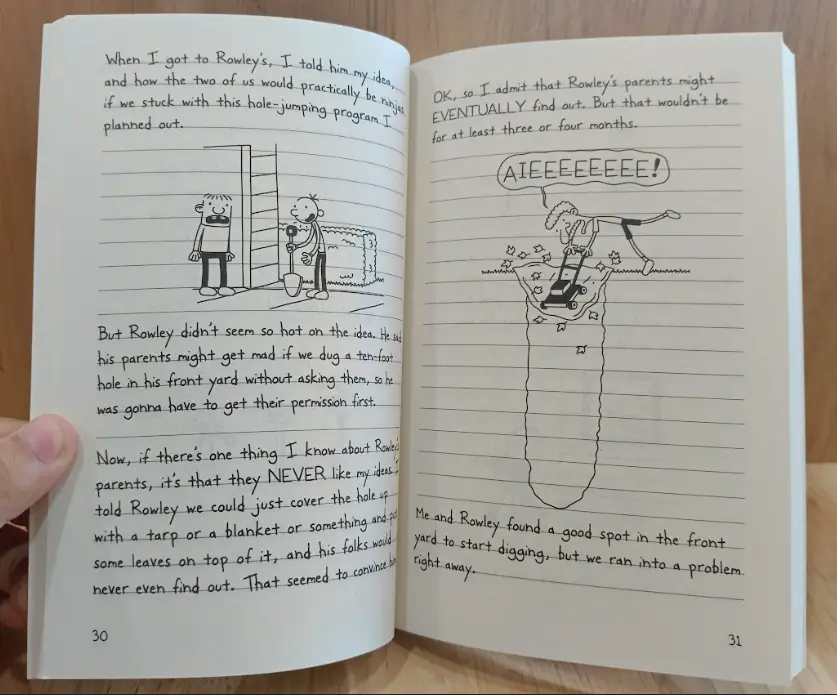 When I got to Rowley's, I told him my idea,
and how the two of us would practically be ninjas
if we stuck with this hole-jumping program I
planned out.
But Rowley didn't seem so hot on the idea. He said
his parents might get mad if we dug a ten-foot
hole in his front yard without asking them, so he
was gonna have to get their permission first.
Now, if there's one thing I know about Rowley's
parents, it's that they NEVER like my ideas. I
told Rowley we could just cover the hole up
with a tarp or a blanket or something and put
some leaves on top of it, and his folks would
never even find out. That seemed to convince
30
OK, so I admit that Rowley's parents might
EVENTUALLY find out. But that wouldn't be
for at least three or four months.
AIEEEEEEEE!
Me and Rowley found a good spot in the front
yard to start digging, but we ran into a problem
right away.
31